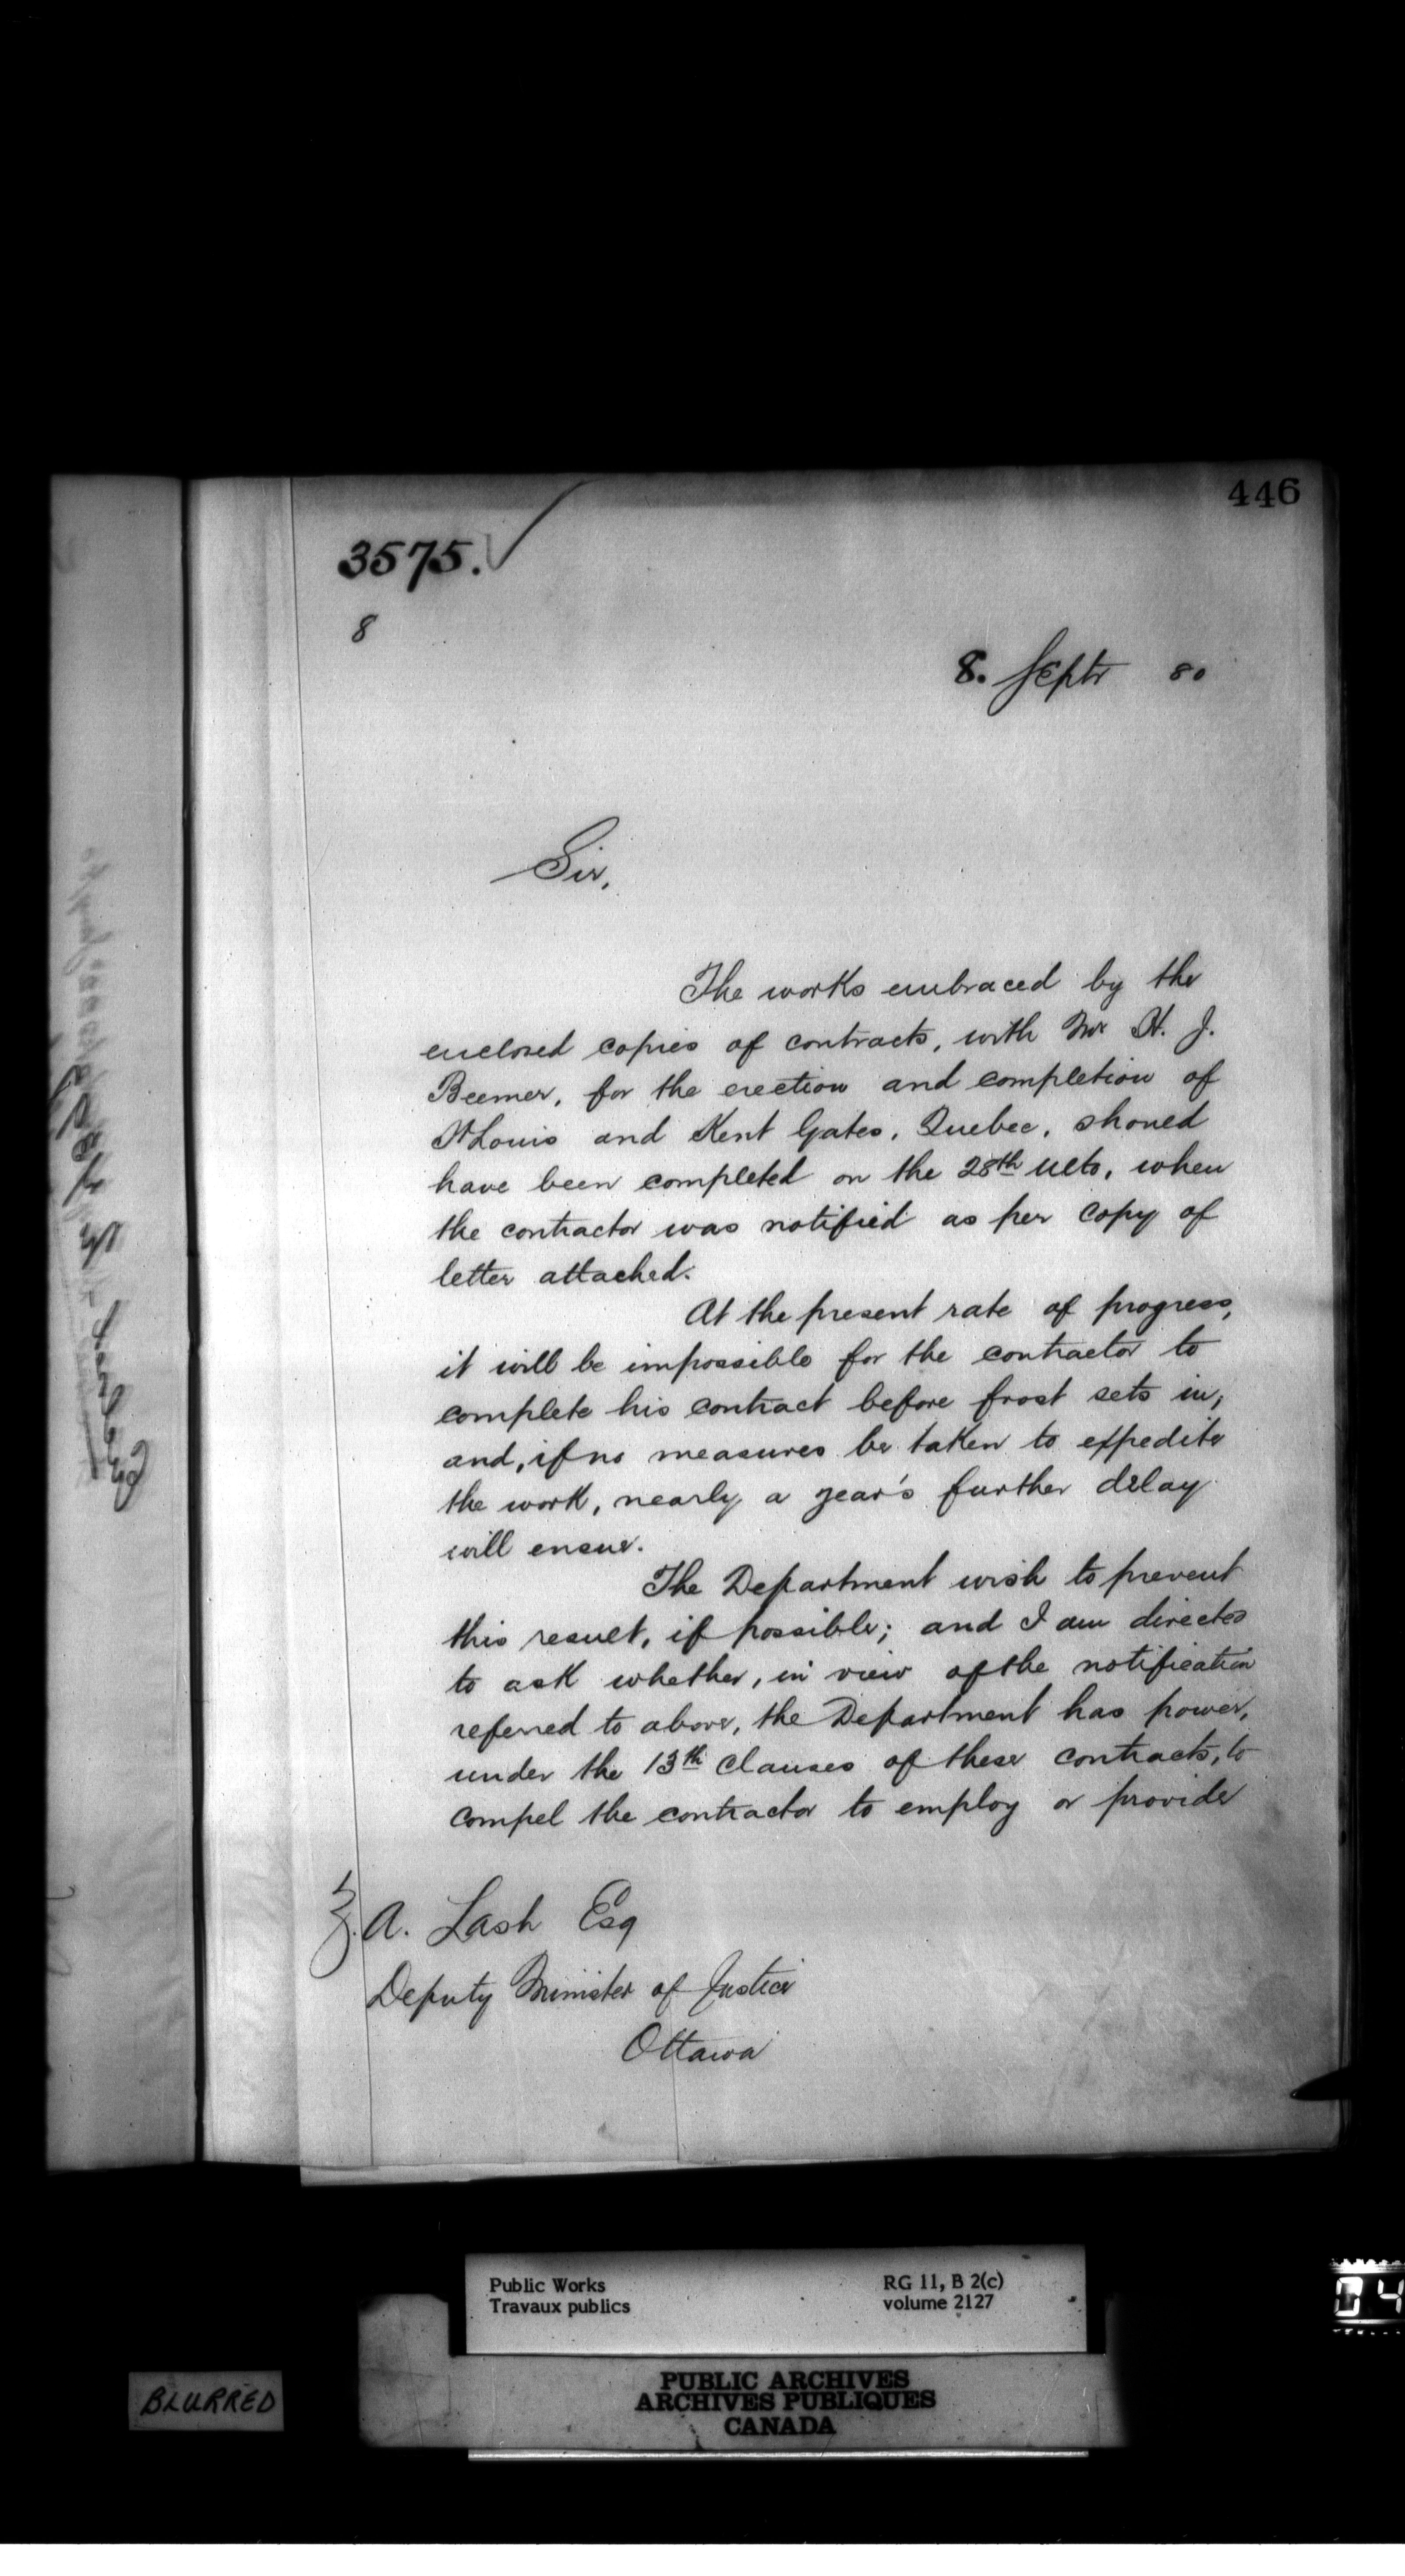 446
3575.
8
8. Septr 80
Sir,
The works embraced by the
enclosed copies of contracts, with Mr H. J.
Beemer, for the erection and completion of
St Louis and Kent Gates, Quebec, should
have been completed on the 28th ulto, when
the contractor was notified as per copy of
letter attached.
At the present rate of progress,
it will be impossible for the contractor to
complete his contract before frost sets in;
and, if no measures be taken to expedite
the work, nearly a year's further delay
will ensue.
The Department wish to prevent
this result, if possible; and I am directed
to ask whether, in view of the notification
referred to above, the Department has power,
under the 13th Clauses of these contracts, to
compel the contractor to employ or provide
Z. A. Lash Esq
Deputy Minister of Justice
Ottawa
Public Works
Travaux publics
RG 11, B 2(c)
volume 2127
04
BLURRED
PUBLIC ARCHIVES
ARCHIVES PUBLIQUES
CANADA